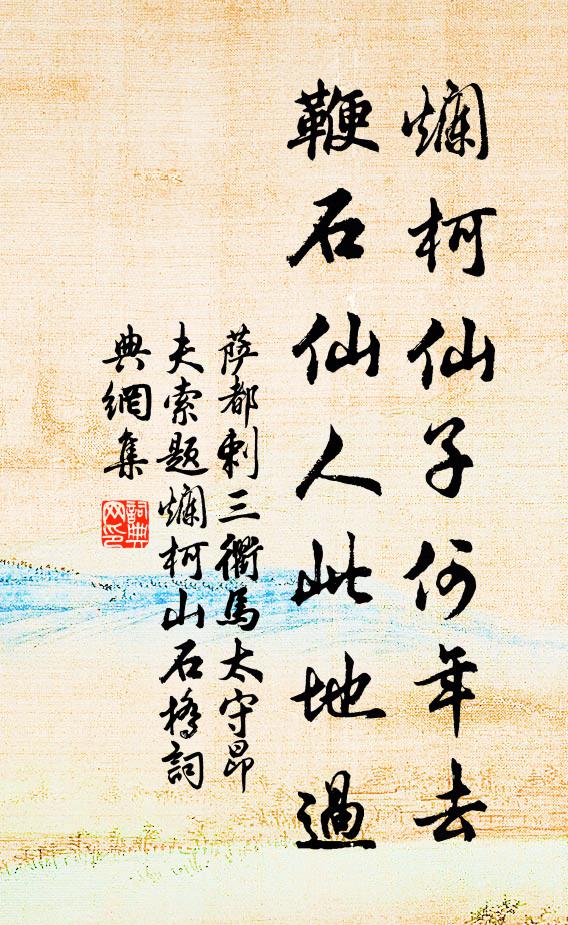 爛柯仙子何年去
鞭石仙人此地過
薩都剌三衢馬太守昂
夫索題爛柯山石橋詞
典網集
詞典網印